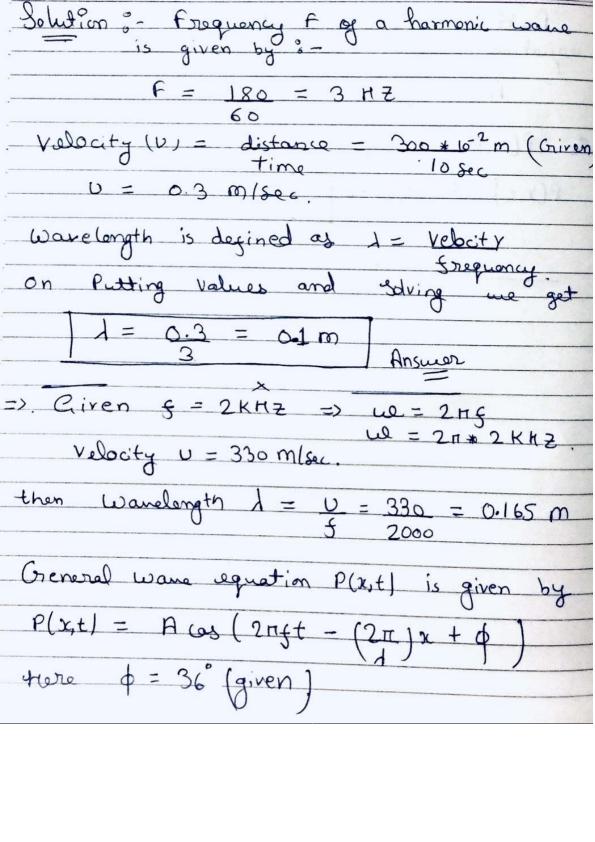 Solution :- Frequency F of a harmonic wave
is given by :-
F = 180/60 = 3 HZ
Velocity (υ) = distance/time = 300 * 10^-2 m/10 sec (Given)
υ = 0.3 m/sec.
Wavelength is defined as λ = Velocity/frequency.
on Putting values and solving we get
λ = 0.3/3 = 0.1 m
Answer
x
=>. Given f = 2KHZ => ω = 2πf
ω = 2π * 2 KHZ.
Velocity υ = 330 m/sec.
then Wavelength λ = υ/f = 330/2000 = 0.165 m
General wave equation P(x,t) is given by
P(x,t) = A cos (2πft - (2π/λ)x + ϕ)
Here ϕ = 36° (given)